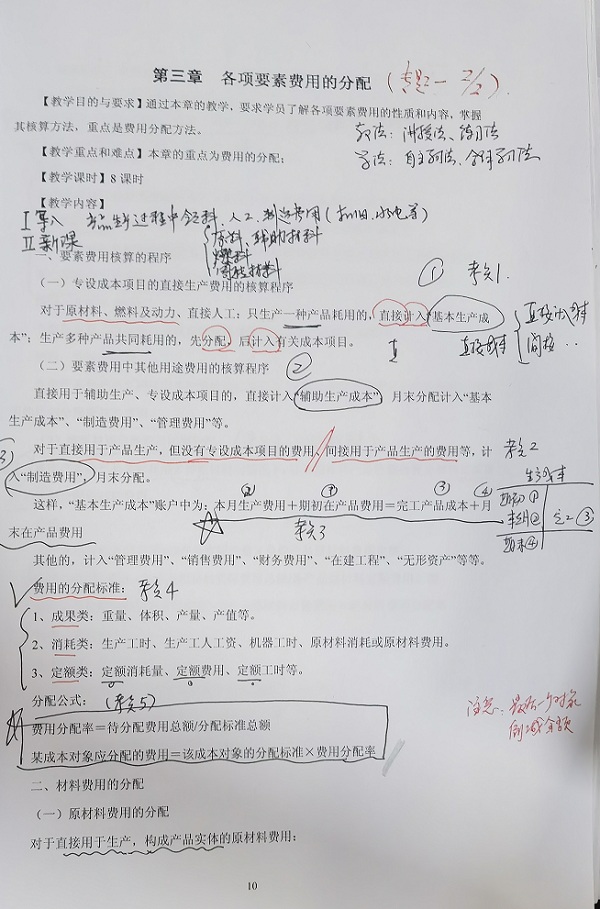 第三章　各项要素费用的分配
【教学目的与要求】通过本章的教学，要求学员了解各项要素费用的性质和内容，掌握
其核算方法，重点是费用分配方法。
教法：讲授法、练习法
【教学重点和难点】本章的重点为费用的分配；
学法：自主学习法、合作学习法
【教学课时】8 课时
【教学内容】
I 导入
生产过程中领料、人工、制造费用（折旧、水电等）
II 新课
原料、辅助材料
燃料
一、要素费用核算的程序
（一）专设成本项目的直接生产费用的核算程序
① 考点1.
对于原材料、燃料及动力、直接人工：只生产一种产品耗用的，直接计入“基本生产成
本”；生产多种产品共同耗用的，先分配，后计入有关成本项目。
直接计入成本
间接 ..
（二）要素费用中其他用途费用的核算程序 ②
直接用于辅助生产、专设成本项目的，直接计入“辅助生产成本”，月末分配计入“基本
生产成本”、“制造费用”、“管理费用”等。
对于直接用于产品生产，但没有专设成本项目的费用、间接用于产品生产的费用等，计 考点2
③
入“制造费用”，月末分配。
生产成本
期初 ①
本月 ② 完工 ③
期末 ④
② ① ③ ④
这样，“基本生产成本”账户中为：本月生产费用＋期初在产品费用＝完工产品成本＋月
末在产品费用
考点3
其他的，计入“管理费用”、“销售费用”、“财务费用”、“在建工程”、“无形资产”等等。
费用的分配标准： 考点4
1、成果类：重量、体积、产量、产值等。
2、消耗类：生产工时、生产工人工资、机器工时、原材料消耗或原材料费用。
3、定额类：定额消耗量、定额费用、定额工时等。
分配公式：（考点5）
费用分配率＝待分配费用总额/分配标准总额
某成本对象应分配的费用＝该成本对象的分配标准×费用分配率
注意：最后一个对象
倒减余额
二、材料费用的分配
（一）原材料费用的分配
对于直接用于生产，构成产品实体的原材料费用：
10